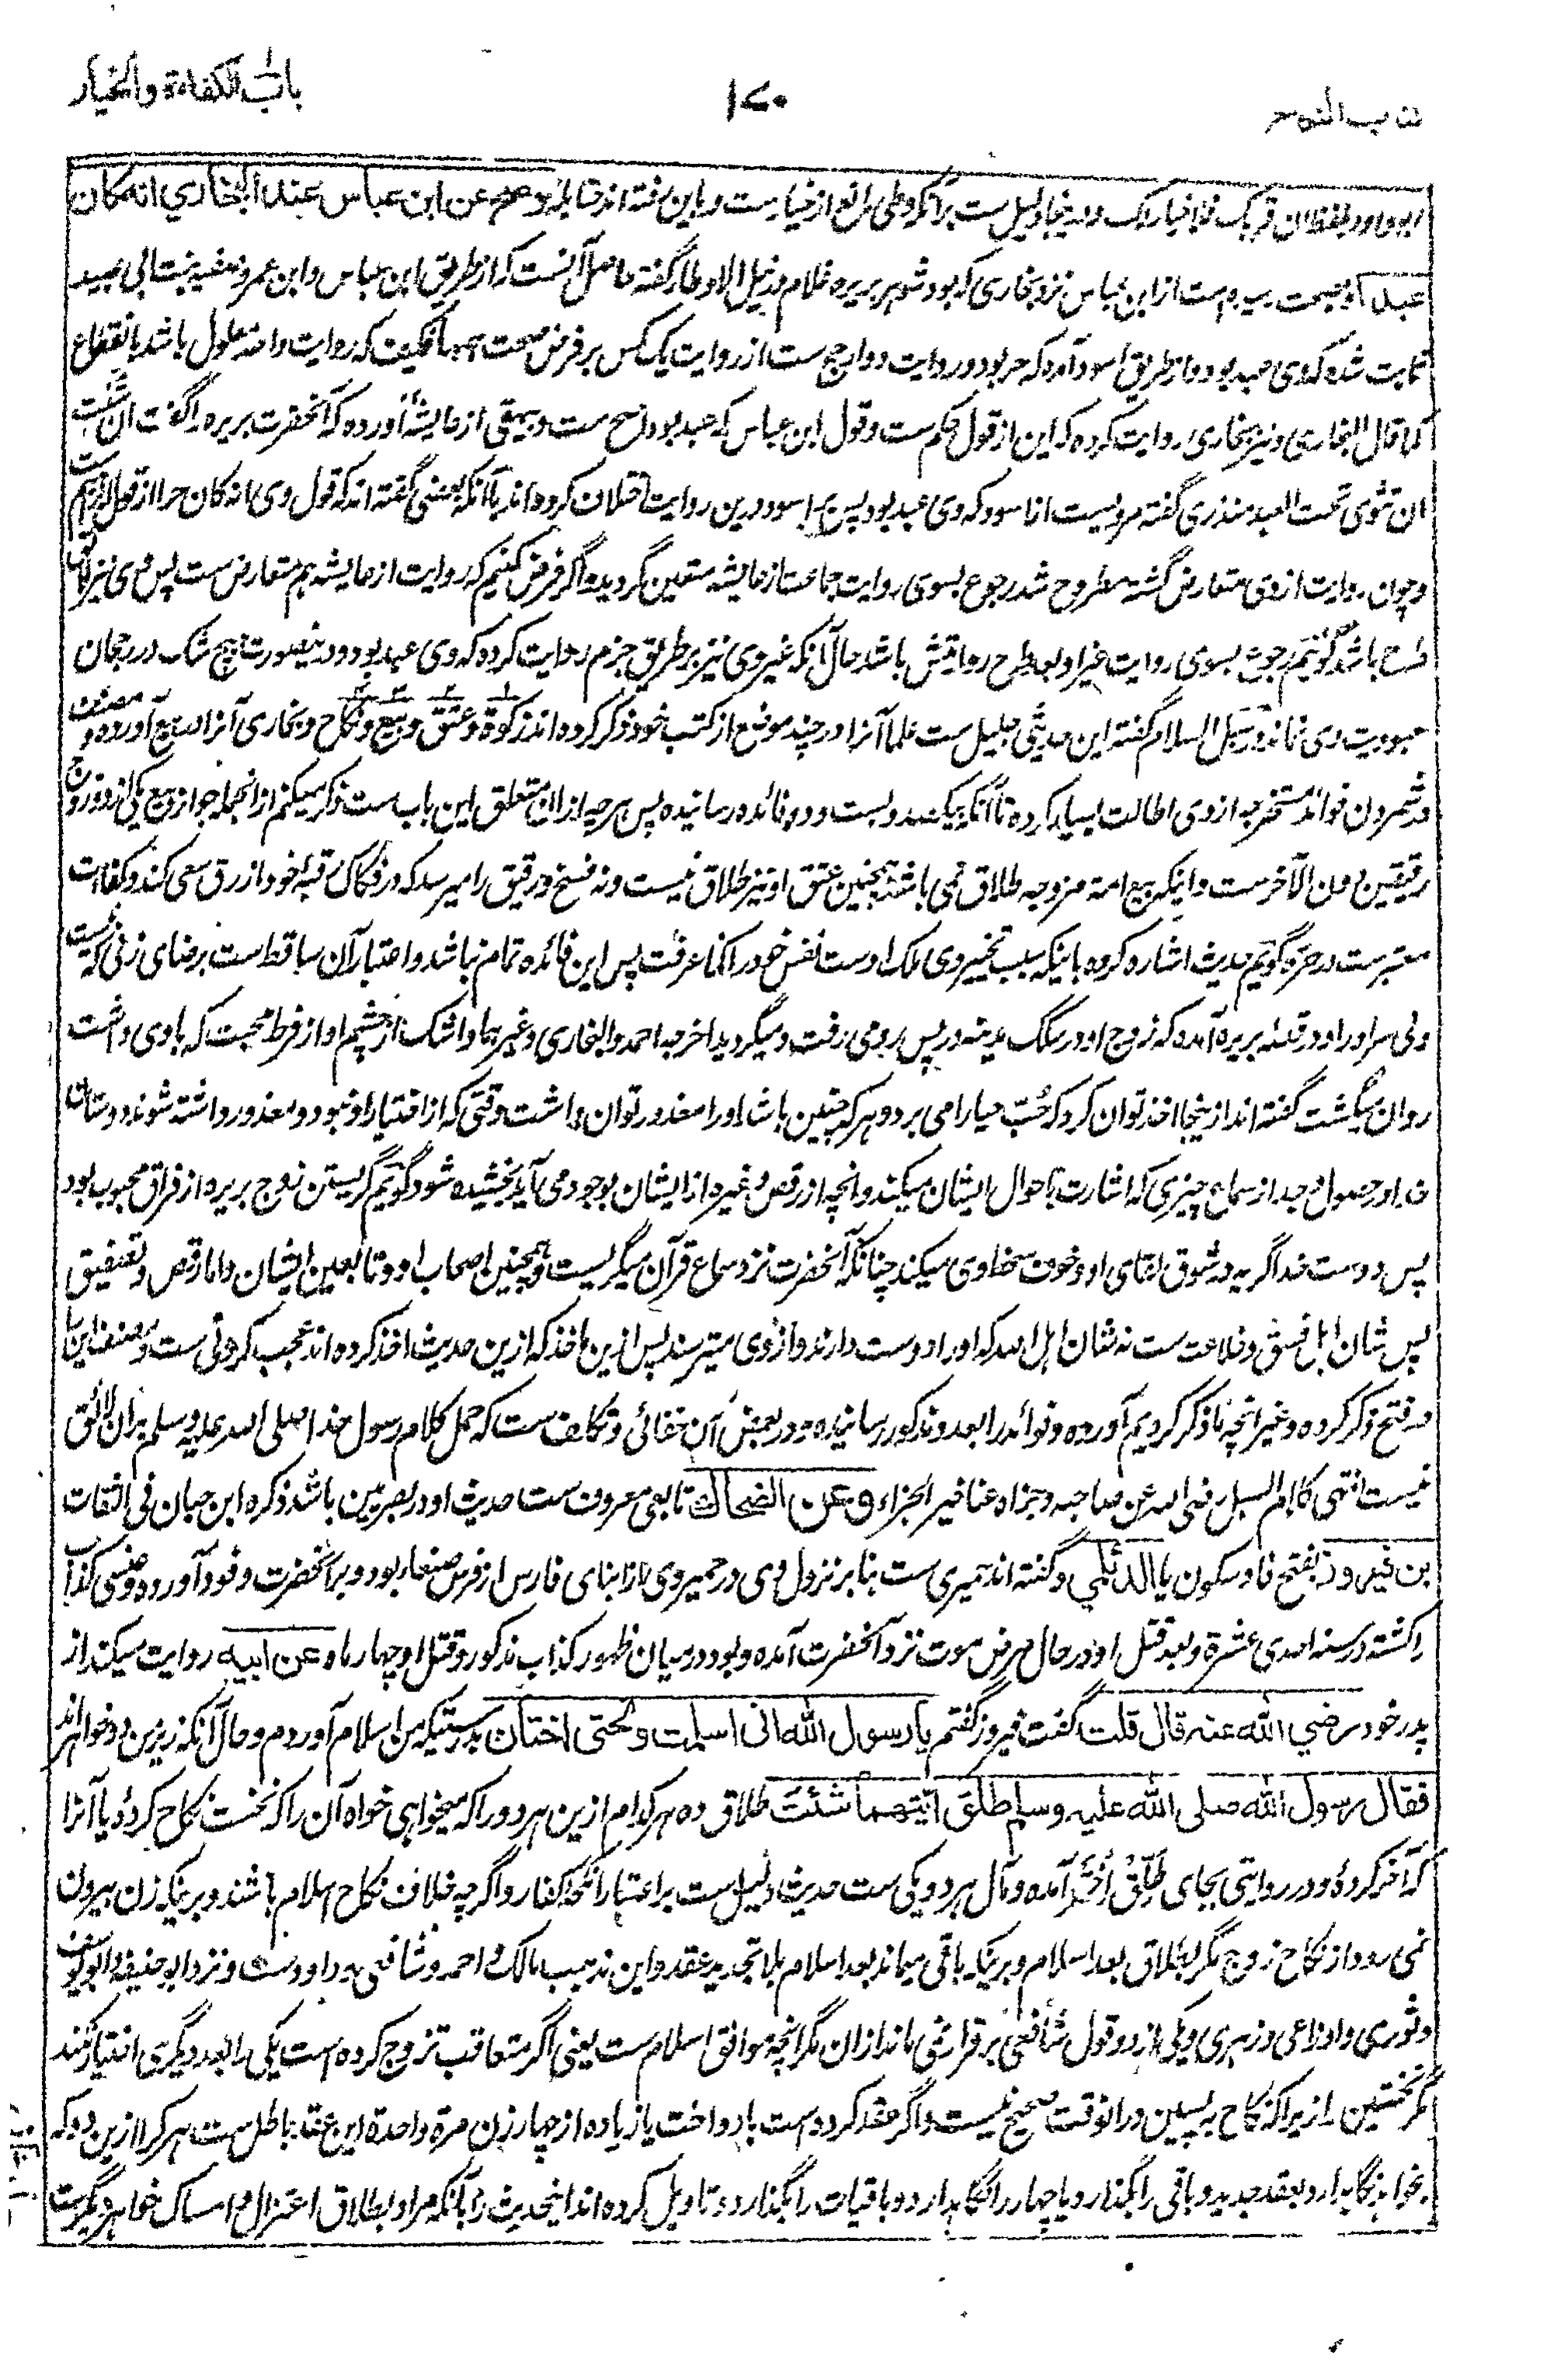 باب الكفاءة والخيار
۱۷۰
ابوداود بلفظ ان قربك فلا خيار لك ودرينجا دليل ست برآنكه وطى مانع از خيار ست وباين رفته اند حنابله وصح عن ابن عباس عند البخاري انه كان
عبدا وبصحت رسيده است از ابن عباس نزد بخارى كه بود شوهر بريره غلام ودر نيل الاوطار گفته حاصل آنست كه از طريق ابن عباس وابن عمر وصفيه بنت ابى عبيد
ثابت شده كه وى عبد بود واز طريق اسود آمده كه حر بود وروايت دو ارجح ست از روايت يك كس بر فرض صحت همه فكيف كه روايت واحد معلول باشد بانقطاع
كما قال البخارى ونيز بخارى روايت كرده كه اين از قول حكم ست وقول ابن عباس كه عبد بود اصح ست وبيهقى از عايشه آورده كه آنحضرت بريره را گفت ان شئت
ان تثوى تحت العبد منذرى گفته مرويست از اسود كه وى عبد بود پس بر اسود درين روايت اختلاف كرده اند با آنكه بعضى گفته اند كه قول وى انه كان حرا از قول
وچون روايت از وى متعارض گشته مطروح شد رجوع بسوى روايت جماعت از عايشه متعين گرديد واگر فرض كنيم كه روايت از عايشه هم متعارض ست پس وى نيز
طرح باشد گوئيم رجوع بسوى روايت غير او بعد طرح روايتش باشد حال آنكه غير وى نيز بر طريق جزم روايت كرده كه وى عبد بود ودرينصورت هيچ شك در رجحان
عبوديت وى نماند ودر سبل السلام گفته اين حديثى جليل ست علما آنرا در چند موضع از كتب خود ذكر كرده اند زكوة وعتق وبيع ونكاح وبخارى آنرا در بيع آورده ومصنف
در شمردن فوائد مستخرجه از وى اطالت بسيار كرده تا آنكه بيكصد وبست ودو فائده رسانيده پس هرچه از ان متعلق اين باب ست ذكر ميكنم از انجمله جواز بيع يكى از دو زوج
رقيقين دون الآخر ست واينكه بيع امة مزوجه طلاق نمى باشد وهمچنين عتق او نيز طلاق نيست ونه فسخ ورقيق را ميرسد كه در فكاك رقبه خود از رق سعى كند وكفاءت
معتبر ست در حره گويم حديث اشاره كرده باينكه سبب تخيير وى ملك اوست نفس خود را كما عرفت پس اين فائده تمام نباشد واعتبار آن ساقط است برضاى زنى كه نيست
ولى مر او را ودر قصه بريره آمده كه زوج او در سكك مدينه در پس رو مى رفت وميگرديد اخرجه احمد والبخارى وغيرهما واشك از چشم او از فرط محبت كه با وى داشت
روان ميگشت گفته اند ازينجا اخذ توان كرد كه حب حيا را مى برد وهر كه چنين باشد او را معذور توان داشت وقتى كه از اختيار او نبود ومعذور داشته شوند دوستان
خدا در حصول وجد از سماع چيزى كه اشارت باحوال ايشان ميكند وانچه از رقص وغيره از ايشان بوجود مى آيد بخشيده شود گويم گريستن زوج بريره از فراق محبوب بود
پس دوست خدا گريه در شوق لقاى او وخوف سخط وى ميكند چنانكه آنحضرت نزد سماع قرآن ميگريست وهمچنين اصحاب او وتابعين ايشان واما رقص وتصفيق
پس شان اهل فسق وخلاعت ست نه شان اهل الله كه او را دوست دارند واز وى ميترسند پس ازين ماخذ كه ازين حديث اخذ كرده اند عجب كردنى ست ومصنف اين را
در فتح ذكر كرده وغير انچه ما ذكر كرديم آورده وفوائد را بعدد مذكور رسانيده ودر بعض آن خفائى وتكلف ست كه حمل كلام رسول خدا صلى الله عليه وسلم بران لائق
نيست انتهى كلام السبل رضى الله عن صاحبه وجزاه عنا خير الجزاء وعن الضحاك تابعى معروف ست حديث او در بصريين باشد ذكره ابن حبان فى الثقات
بن فيروز بفتح فا وسكون يا الديلمي وگفته اند حميرى ست بنا بر نزول وى در حمير وى از ابناى فارس از فرس صنعا بود وبر آنحضرت وفود آورده وعنسى كذاب
را كشته در سنه احدى عشرة وبعد قتل او در حال مرض موت نزد آنحضرت آمده وبود در ميان ظهور كذاب مذكور وقتل او چهار ماه وعن ابيه روايت ميكند از
پدر خود رضي الله عنه قال قلت گفت فيروز گفتم يا رسول الله انى اسلمت وتحتى اختان بدرستيكه من اسلام آوردم وحال آنكه زير من دو خواهر اند
فقال رسول الله صلى الله عليه وسلم طلق ايتهما شئت طلاق ده هر كدام ازين هر دو را كه ميخواهى خواه آن را كه نخست نكاح كردۀ يا آنرا
كه آخر كردۀ ودر روايتى بجاى طلق اختر آمده ومآل هر دو يكى ست حديث دليل ست بر اعتبار انكحۀ كفار واگرچه خلاف نكاح اسلام باشند وبرينكه زن بيرون
نمى رود از نكاح زوج مگر بطلاق بعد اسلام وبرينكه باقى ميماند بعد اسلام بلا تجديد عقد واين مذهب مالك واحمد وشافعى وداود ست ونزد ابوحنيفه وابو يوسف
وثورى واوزاعى وزهرى ويكى از دو قول شافعى برقرار نمى ماند ازان مگر انچه موافق اسلام ست يعنى اگر متعاقب تزوج كرده است يكى را بعد ديگرى اختيار نكند
مگر نخستين را زيراكه نكاح پسين درانوقت صحيح نيست واگر عقد كرده ست با دو اخت يا زياده از چهار زن مرة واحدة اين عقد باطل ست هر كرا ازين دو كه
بخواهد نگاه دارد بعقد جديد وباقى را بگذارد ويا چهار را نگاه دارد وباقيات را بگذارد وتاويل كرده اند اينحديث را بآنكه مراد بطلاق اعتزال وامساك خواهر ديگرست